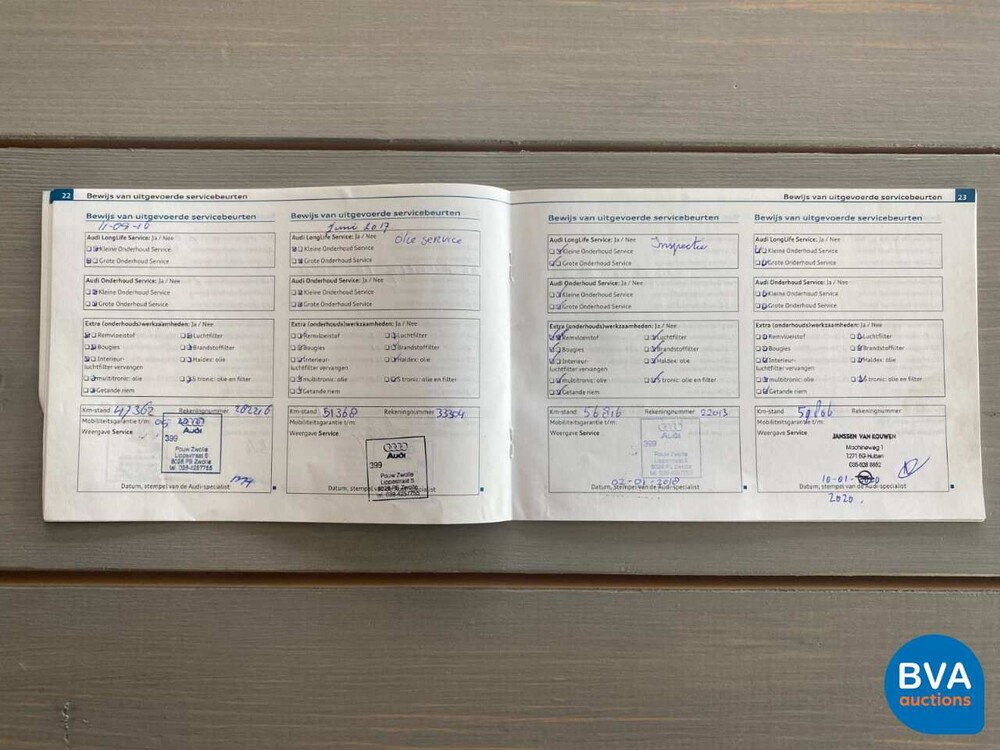 22 Bewijs van uitgevoerde servicebeurten
Bewijs van uitgevoerde servicebeurten
Audi LongLife Service: Ja / Nee
Kleine Onderhoud Service
Grote Onderhoud Service
Audi Onderhoud Service: Ja / Nee
Kleine Onderhoud Service
Grote Onderhoud Service
Extra (onderhouds)werkzaamheden: Ja / Nee
Remvloeistof Luchtfilter
Bougies Brandstoffilter
Interieur- Haldex: olie
luchtfilter vervangen
multitronic: olie S tronic: olie en filter
Getande riem
Km-stand 47362 Rekeningnummer
Mobiliteitsgarantie t/m:
Weergave Service
Audi
399
Pouw Zwolle
Lippestraat 5
Datum, stempel van de Audi-specialist
Bewijs van uitgevoerde servicebeurten
Juni 2017
Audi LongLife Service: Ja / Nee
Olie service
Kleine Onderhoud Service
Grote Onderhoud Service
Audi Onderhoud Service: Ja / Nee
Kleine Onderhoud Service
Grote Onderhoud Service
Extra (onderhouds)werkzaamheden: Ja / Nee
Remvloeistof Luchtfilter
Bougies Brandstoffilter
Interieur- Haldex: olie
luchtfilter vervangen
multitronic: olie S tronic: olie en filter
Getande riem
Km-stand 51368 Rekeningnummer 33304
Mobiliteitsgarantie t/m:
Weergave Service
Audi
399
Pouw Zwolle
Lippestraat 5
Datum, stempel van de Audi-specialist
Bewijs van uitgevoerde servicebeurten 23
Bewijs van uitgevoerde servicebeurten
Audi LongLife Service: Ja / Nee
Inspectie
Kleine Onderhoud Service
Grote Onderhoud Service
Audi Onderhoud Service: Ja / Nee
Kleine Onderhoud Service
Grote Onderhoud Service
Extra (onderhouds)werkzaamheden: Ja / Nee
Remvloeistof Luchtfilter
Bougies Brandstoffilter
Interieur- Haldex: olie
luchtfilter vervangen
multitronic: olie S tronic: olie en filter
Getande riem
Km-stand 56816 Rekeningnummer 22013
Mobiliteitsgarantie t/m:
Weergave Service
Audi
399
Pouw Zwolle
Lippestraat 5
02-01-2018
Datum, stempel van de Audi-specialist
Bewijs van uitgevoerde servicebeurten
Audi LongLife Service: Ja / Nee
Kleine Onderhoud Service
Grote Onderhoud Service
Audi Onderhoud Service: Ja / Nee
Kleine Onderhoud Service
Grote Onderhoud Service
Extra (onderhouds)werkzaamheden: Ja / Nee
Remvloeistof Luchtfilter
Bougies Brandstoffilter
Interieur- Haldex: olie
luchtfilter vervangen
multitronic: olie S tronic: olie en filter
Getande riem
Km-stand Rekeningnummer
Mobiliteitsgarantie t/m:
Weergave Service
JANSSEN VAN KOUWEN
Machineweg 1
Datum, stempel van de Audi-specialist
2020.
BVA
auctions